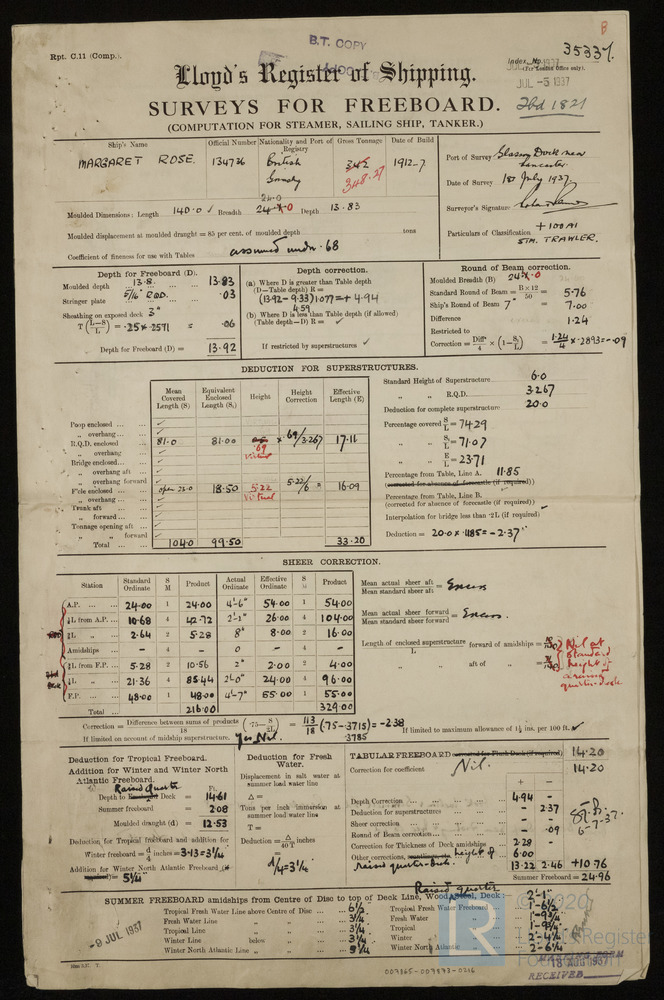 B
B.T. COPY
Rpt. C.11 (Comp.).
35337.
Index No.
(For London Office only).
Lloyd's Register of Shipping.
JUL -5 1937
SURVEYS FOR FREEBOARD.
Fbd 1821
(COMPUTATION FOR STEAMER, SAILING SHIP, TANKER.)
Ship's Name Official Number Nationality and Port of Registry Gross Tonnage Date of Build
MARGARET ROSE. 134736 British Grimsby 342 348.27 1912-7
Port of Survey Glasson Dock near Lancaster.
Date of Survey 1st July 1937.
Surveyor's Signature
Particulars of Classification +100A1 STM. TRAWLER.
Moulded Dimensions: Length 140.0 Breadth 24.0 Depth 13.83
Moulded displacement at moulded draught = 85 per cent. of moulded depth tons
Coefficient of fineness for use with Tables assumed under .68
Depth for Freeboard (D).
Moulded depth 13.8. 13.83
Stringer plate 5/16" RQD. .03
Sheathing on exposed deck 3"
T(L-S/L) = .25 x .2571 = .06
Depth for Freeboard (D) = 13.92
Depth correction.
(a) Where D is greater than Table depth
(D-Table depth) R =
(13.92-9.33)1.077=+4.94
4.59
(b) Where D is less than Table depth (if allowed)
(Table depth-D) R =
If restricted by superstructures
Round of Beam correction.
Moulded Breadth (B) 24.0
Standard Round of Beam = B×12/50 = 5.76
Ship's Round of Beam 7" = 7.00
Difference 1.24
Restricted to
Correction = Diff/4 × (1-S₁/L) = 1.24/4 x .2893 = -.09
DEDUCTION FOR SUPERSTRUCTURES.
Mean Covered Length (S) Equivalent Enclosed Length (S₁) Height Height Correction Effective Length (E)
Poop enclosed
" overhang
R.Q.D. enclosed 81.0 81.00 .69 Virtual x .69/3.267 17.11
" overhang
Bridge enclosed
" overhang aft
" overhang forward
F'cle enclosed open 23.0 18.50 5.22 Virtual 5.22/6 = 16.09
" overhang
Trunk aft
" forward
Tonnage opening aft
" " forward
Total 104.0 99.50 33.20
Standard Height of Superstructure 6.0
" " R.Q.D. 3.267
Deduction for complete superstructure 20.0
Percentage covered S/L = 74.29
" " S₁/L = 71.07
" " E/L = 23.71
Percentage from Table, Line A. 11.85
(corrected for absence of forecastle (if required))
Percentage from Table, Line B.
(corrected for absence of forecastle (if required))
Interpolation for bridge less than ·2L (if required)
Deduction = 20.0 x .1185 = -2.37"
SHEER CORRECTION.
Station Standard Ordinate S M Product Actual Ordinate Effective Ordinate S M Product
A.P. 24.00 1 24.00 4'-6" 54.00 1 54.00
⅙L from A.P. 10.68 4 42.72 2'-2" 26.00 4 104.00
⅓L " 2.64 2 5.28 8" 8.00 2 16.00
Amidships - 4 - 0 - 4 -
⅓L from F.P. 5.28 2 10.56 2" 2.00 2 4.00
⅙L " 21.36 4 85.44 2'-0" 24.00 4 96.00
F.P. 48.00 1 48.00 4'-7" 55.00 1 55.00
Total 216.00 329.00
Mean actual sheer aft / Mean standard sheer aft = Excess
Mean actual sheer forward / Mean standard sheer forward = Excess.
Length of enclosed superstructure / L forward of amidships =
" " aft of " =
Nil at Standard height of raised quarter-deck
Correction = Difference between sums of products / 18 (·75-S/2L) = 113/18 (.75-.3715) = -2.38
.3785
If limited on account of midship superstructure. Yes Nil.
If limited to maximum allowance of 1½ ins. per 100 ft.
Deduction for Tropical Freeboard.
Addition for Winter and Winter North Atlantic Freeboard.
Raised Quarter Ft.
Depth to Deck = 14.61
Summer freeboard = 2.08
Moulded draught (d) = 12.53
Deduction for Tropical freeboard and addition for
Winter freeboard = d/4 inches = 3.13 = 3¼
Addition for Winter North Atlantic Freeboard (if
= 5¼"
Deduction for Fresh Water.
Displacement in salt water at summer load water line
Δ =
Tons per inch immersion at summer load water line
T =
Deduction = Δ/40T inches
=
d/4 = 3¼"
TABULAR FREEBOARD corrected for Flush Deck (if required) 14.20
Correction for coefficient Nil. 14.20
+ -
Depth Correction 4.94 -
Deduction for superstructures - 2.37
Sheer correction - -
Round of Beam correction - .09
Correction for Thickness of Deck amidships 2.28 -
Other corrections, height of raised quarter-deck 6.00
13.22 2.46 +10.76
Summer Freeboard = 24.96
6-7-37.
Raised quarter
SUMMER FREEBOARD amidships from Centre of Disc to top of Deck Line, Wood, Steel, Deck: 2'-1"
Tropical Fresh Water Line above Centre of Disc 6½ Tropical Fresh Water Freeboard 1'-6½
Fresh Water Line " " 3¼ Fresh Water " 1'-9¾
Tropical Line " " 3¼ Tropical " 1'-9¾
Winter Line below " 3¼ Winter " 2'-4¼
Winter North Atlantic Line " " 5¼ Winter North Atlantic " 2'-6¼
-9 JUL 1937
18 AUG 1937
RECEIVED
007865-007873-0216
© 2020
LR
Lloyd's Register
Foundation